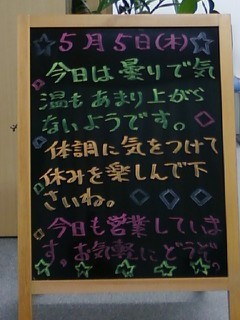 5月5日(木)
今日は曇りで気
温もあまり上がら
ないようです。
体調に気をつけて
休みを楽しんで下
さいね。
今日も営業していま
す。お気軽にどうぞ。